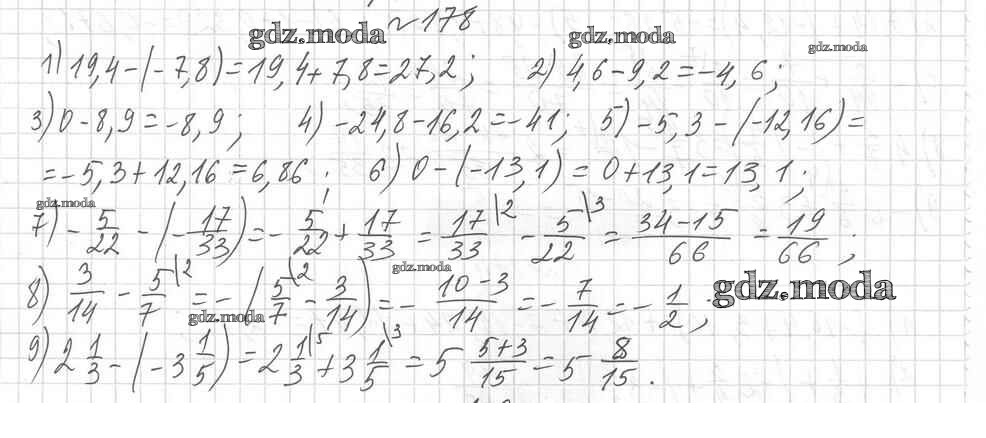 № 178
gdz.moda gdz.moda gdz.moda
1) 19,4-(-7,8)=19,4+7,8=27,2; 2) 4,6-9,2=-4,6;
3) 0-8,9=-8,9; 4) -24,8-16,2=-41; 5) -5,3-(-12,16)=
=-5,3+12,16=6,86; 6) 0-(-13,1)=0+13,1=13,1;
gdz.moda
7) -5/22-(-17/33)=-5/22+17/33=17/33\2-5/22\3=(34-15)/66=19/66;
gdz.moda
8) 3/14-5/7\2=-(5/7\2-3/14)=-(10-3)/14=-7/14=-1/2;
gdz.moda gdz.moda
9) 2 1/3-(-3 1/5)=2 1/3\5+3 1/5\3=5 (5+3)/15=5 8/15.